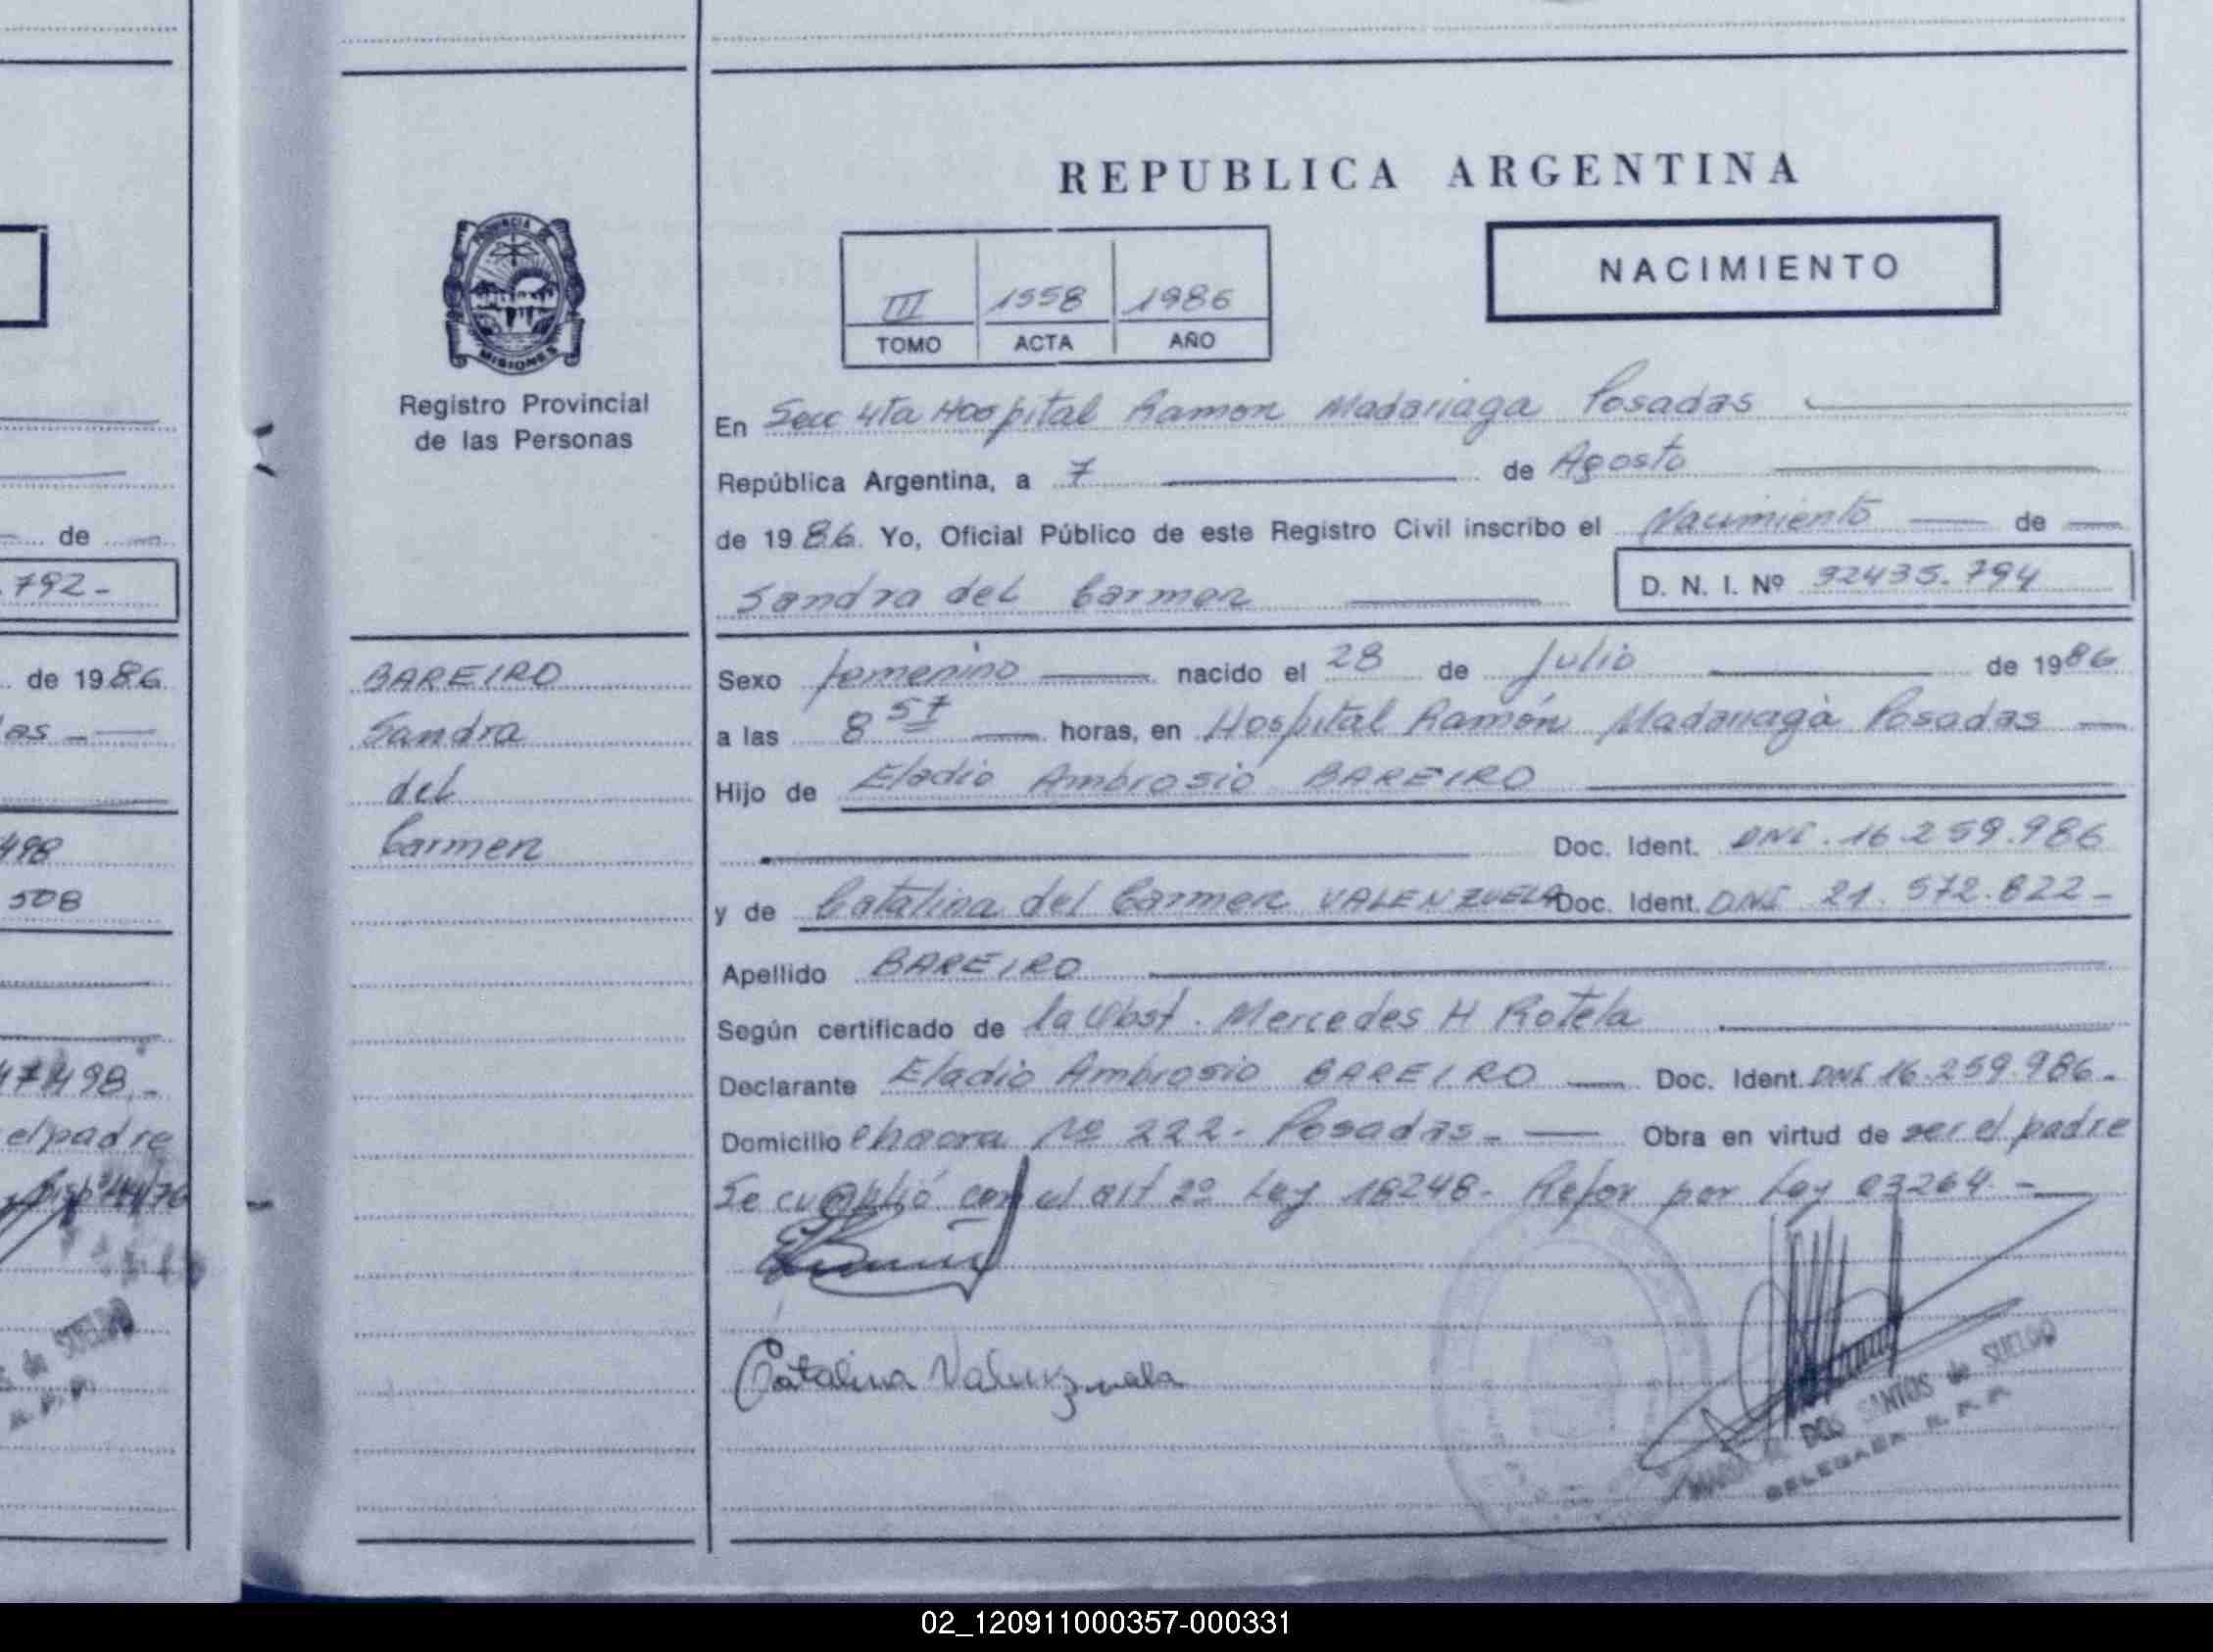 REPUBLICA ARGENTINA
PROVINCIA DE
MISIONES
Registro Provincial
de las Personas
III 1558 1986
TOMO ACTA AÑO
NACIMIENTO
En Secc 4ta Hospital Ramon Madariaga Posadas
República Argentina, a 7 de Agosto
de 1986. Yo, Oficial Público de este Registro Civil inscribo el Nacimiento de
Sandra del Carmen D. N. I. Nº 92435.794
BAREIRO
Sandra
del
Carmen
Sexo femenino nacido el 28 de Julio de 1986
a las 8 57 horas, en Hospital Ramón Madariaga Posadas
Hijo de Eladio Ambrosio BAREIRO
Doc. Ident. DNI. 16.259.986
y de Catalina del Carmen VALENZUELA Doc. Ident. DNI 21.572.822-
Apellido BAREIRO
Según certificado de la Obst. Mercedes H Rotela
Declarante Eladio Ambrosio BAREIRO Doc. Ident. DNI 16.259.986.
Domicilio chacra Nº 222- Posadas- Obra en virtud de ser el padre
Se cumplió con el art 2º Ley 18248- Refor por Ley 23264.-
Catalina Valenzuela
DOS SANTOS de SUELDO
de
792-
de 1986
as
498
508
47498.-
el padre
de SUELDO
02_120911000357-000331